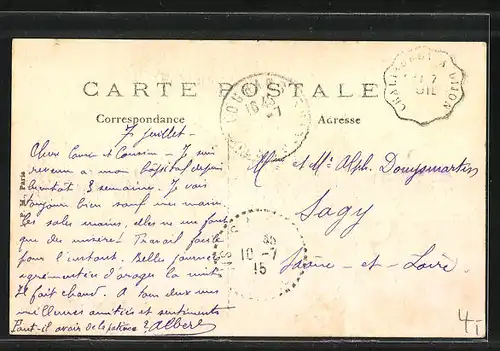 CARTE POSTALE
Correspondance
Adresse
7 Juillet -
Cher Cousine et Cousin - Je suis
revenu a mon hôpital depuis
bientôt 3 semaines. Je vais
toujour bien sauf mes mains
les sales mains, elles ne me font
que des miseres. Travail facile
pour l'instant. Belles journées
agrémentées d'orages la nuit
Il fait chaud. A tous deux mes
meilleures amitiés et sentiments
Faut-il avoir de la patience? Albert
Mme et Mr Alph. Douysmartin
Sagy
Saône-et-Loire
Paris
16 40
-7
10-7
15
DIJON
4,-